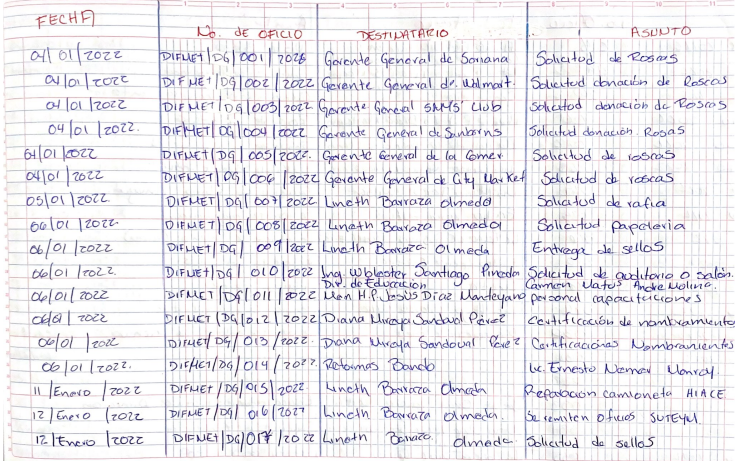 FECHA No. DE OFICIO DESTINATARIO ASUNTO
04/01/2022 DIFMET/DG/001/2026 Gerente General de Soriana Solicitud de Roscas
04/01/2022 DIFMET/DG/002/2022 Gerente General de Walmart. Solicitud donación de Roscas
04/01/2022 DIFMET/DG/003/2022 Gerente General SAMS' Club Solicitud donación de Roscas
04/01/2022. DIFMET/DG/004/2022 Gerente General de Sanborns Solicitud donación Rosas
04/01/2022 DIFMET/DG/005/2022. Gerente General de la Comer Solicitud de roscas
04/01/2022 DIFMET/DG/006/2022 Gerente General de City Market Solicitud de roscas
05/01/2022 DIFMET/DG/007/2022 Lineth Barraza Olmeda Solicitud de rafia
06/01/2022. DIFMET/DG/008/2022 Lineth Barraza Olmeda Solicitud papeleria
06/01/2022 DIFMET/DG/009/2022 Lineth Barraza Olmeda Entrega de sellos
06/01/2022. DIFMET/DG/010/2022 Ing. Santiago Pineda Solicitud de auditorio o salón.
Dir. de Educación Carmen Matus Andre Molina.
06/01/2022 DIFMET/DG/011/2022 H.P. Jesús Díaz personal capacitaciones
06/01/2022 DIFMET/DG/012/2022 Diana Mireya Sandoval Pérez Certificación de nombramiento
06/01/2022 DIFMET/DG/013/2022 Diana Mireya Sandoval Pérez Certificaciones Nombramientos
06/01/2022. DIFMET/DG/014/2022 Reformas Bando Lic. Ernesto Nemer Monroy
11/Enero/2022 DIFMET/DG/015/2022 Lineth Barraza Olmeda Reparación camioneta HIACE
12/Enero/2022 DIFMET/DG/016/2022 Lineth Barraza Olmeda. Se remiten oficios SUTEYM.
12/Enero/2022 DIFMET/DG/017/2022 Lineth Barraza Olmeda Solicitud de sellos